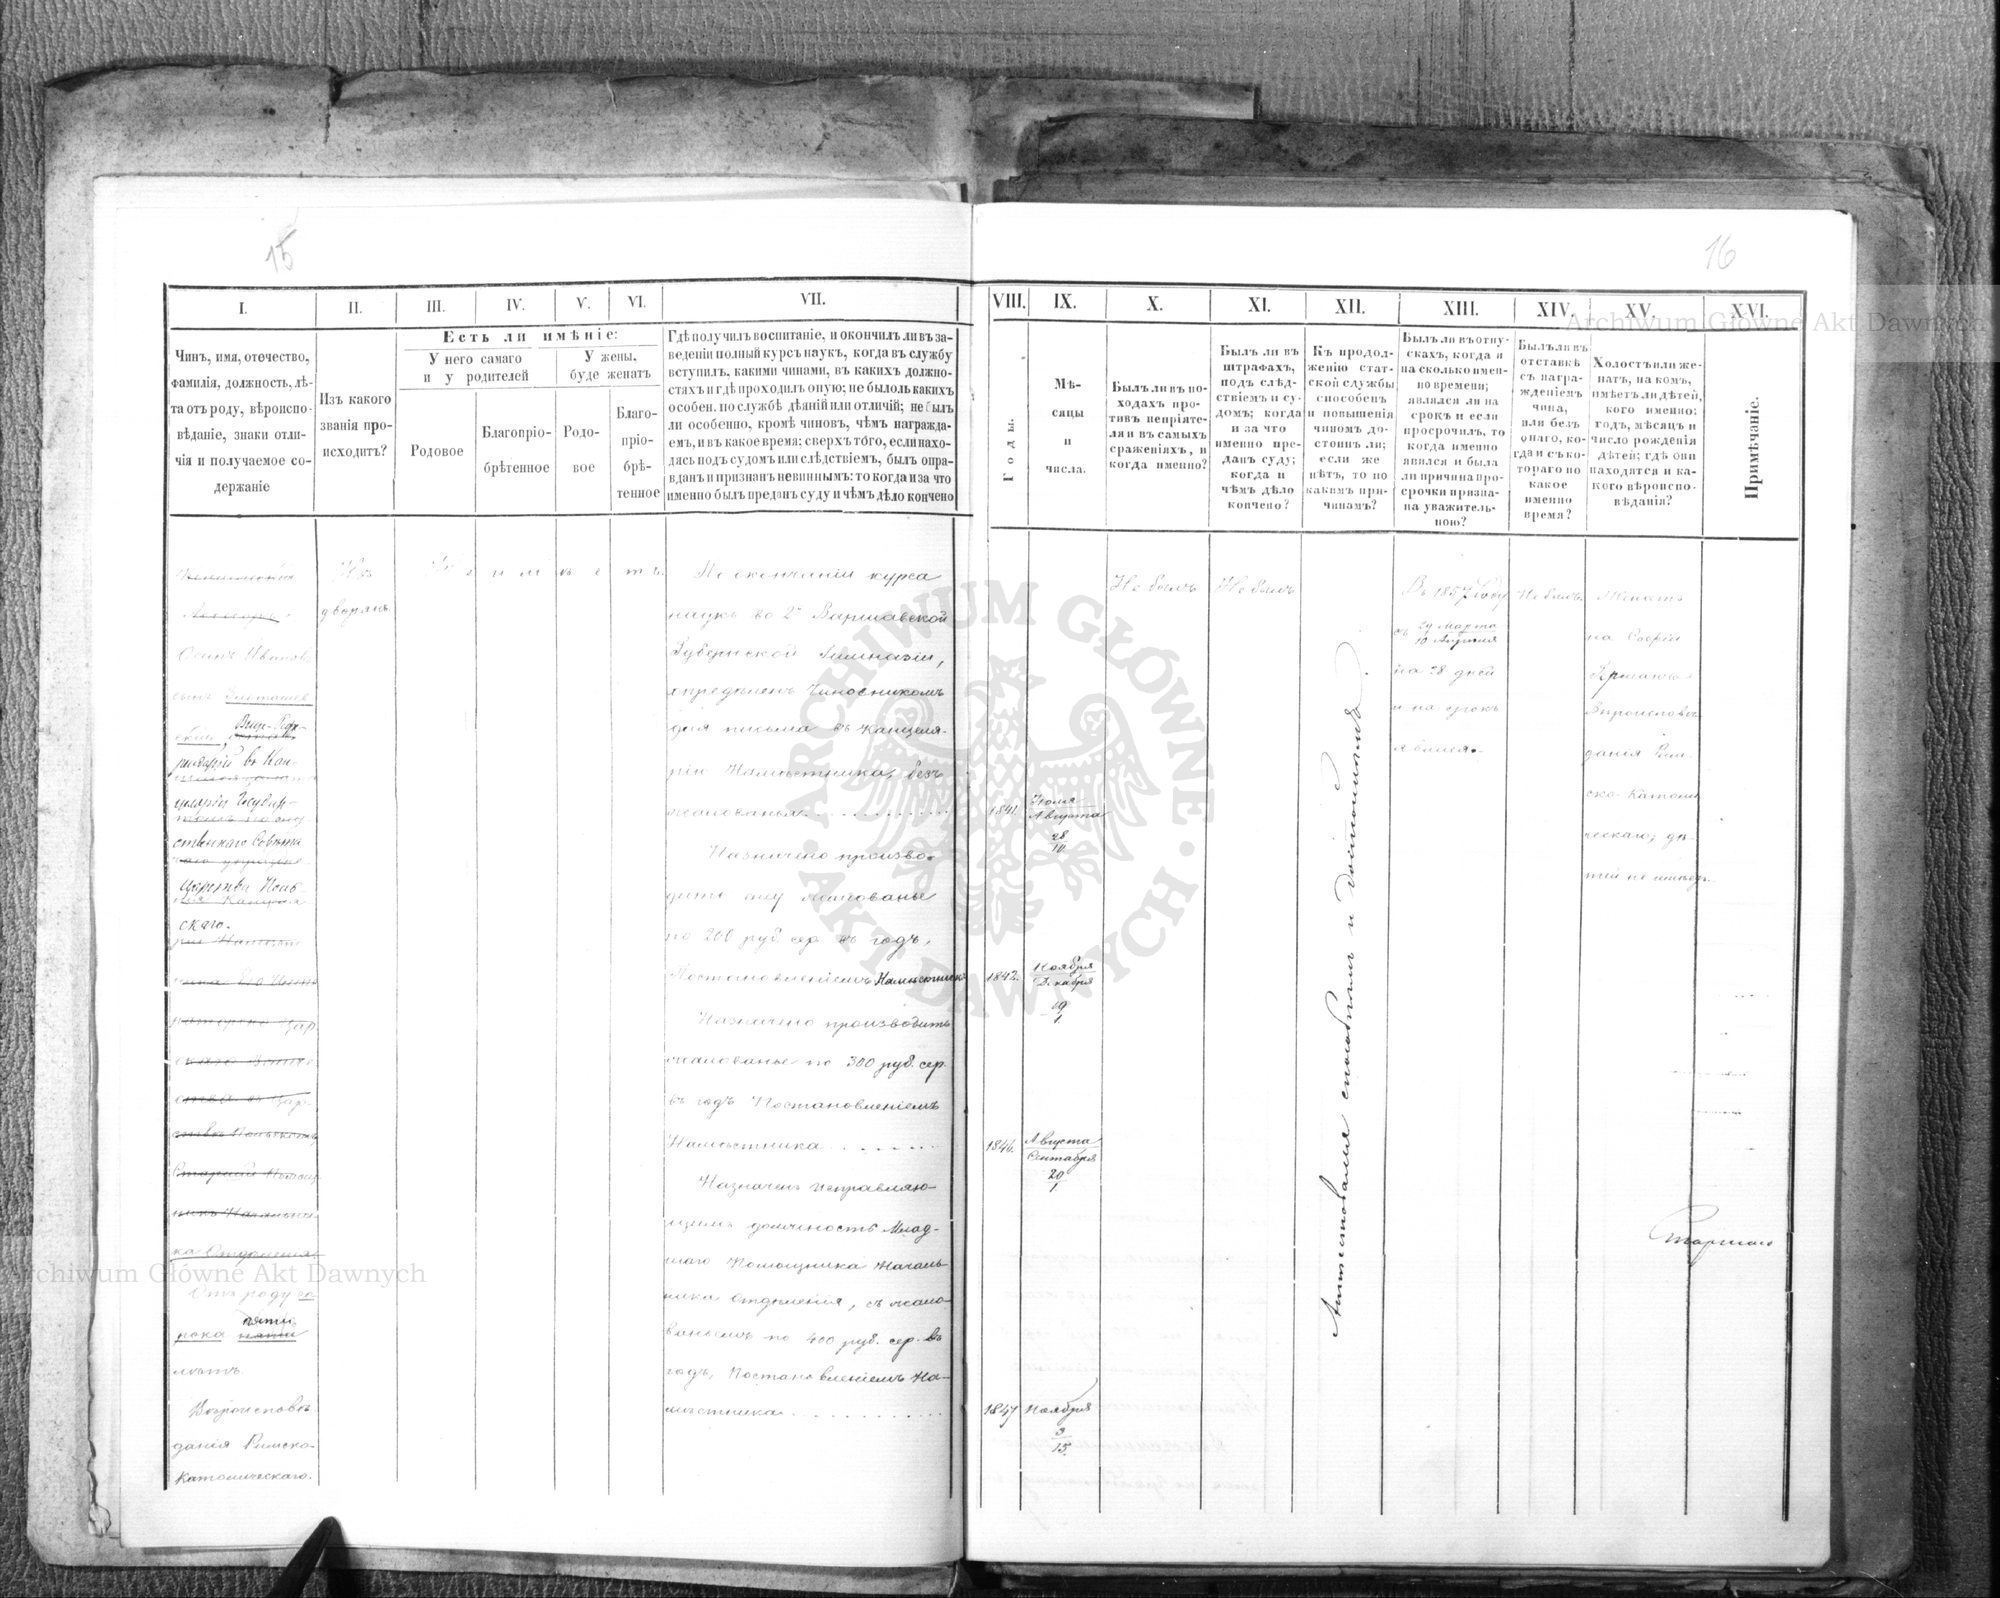 15
I.
II.
III.
IV.
V.
VI.
VII.
Чинъ, имя, отечество,
фамилія, должность, лѣ-
та отъ роду, вѣроиспо-
вѣданіе, знаки отли-
чія и получаемое со-
держаніе
Изъ какого
званія про-
исходитъ?
Есть ли имѣніе:
У него самаго
и у родителей
У жены,
буде женатъ
Родовое
Благопріо-
брѣтенное
Родо-
вое
Благо-
пріо-
брѣ-
тенное
Гдѣ получилъ воспитаніе, и окончилъ ли въ за-
веденіи полный курсъ наукъ, когда въ службу
вступилъ, какими чинами, въ какихъ должно-
стяхъ и гдѣ проходилъ оную; не былоль какихъ
особен. по службѣ дѣяній или отличій; не былъ
ли особенно, кромѣ чиновъ, чѣмъ награжда-
емъ, и въ какое время; сверхъ того, если нахо-
дясь подъ судомъ или слѣдствіемъ, былъ опра-
вданъ и признанъ невиннымъ: то когда и за что
именно былъ преданъ суду и чѣмъ дѣло кончено
Ассесоръ
Осипъ Иванов.
сынъ
рендарій въ Кан-
целяріи Государ-
ственнаго Совѣта
Царства Поль-
скаго.
Отъ роду со-
рока пяти
лѣтъ.
Вѣроисповѣ-
данія Римско-
Католическаго.
Изъ
дворянъ
Не имѣетъ.
По окончаніи курса
наукъ во 2й Варшавской
Губернской Гимназіи,
опредѣленъ Чиновникомъ
для письма въ Канцеля-
рію Намѣстника, безъ
жалованья
Назначено произво-
дить ему жалованье
по 200 руб. сер. въ годъ,
Постановленіемъ Намѣстника
Назначено производить
жалованье по 300 руб. сер.
въ годъ Постановленіемъ
Намѣстника
Назначенъ исправляю-
щимъ должность Млад-
шаго Помощника Началь-
ника Отдѣленія, съ жало-
ваньемъ по 400 руб. сер. въ
годъ, Постановленіемъ На-
мѣстника
16
VIII.
IX.
X.
XI.
XII.
XIII.
XIV.
XV.
XVI.
Годы.
Мѣ-
сяцы
и
числа.
Былъ ли въ по-
ходахъ про-
тивъ непріяте-
ля и въ самыхъ
сраженіяхъ, и
когда именно?
Былъ ли въ
штрафахъ,
подъ слѣд-
ствіемъ и су-
домъ; когда
и за что
именно пре-
данъ суду;
когда и
чѣмъ дѣло
кончено?
Къ продол-
женію стат-
ской службы
способенъ
и повышенія
чиномъ до-
стоинъ ли;
если же
нѣтъ, то по
какимъ при-
чинамъ?
Былъ ли въ отпу-
скахъ, когда и
на сколько имен-
но времени;
являлся ли на
срокъ и если
просрочилъ, то
когда именно
явился и была
ли причина про-
срочки призна-
на уважитель-
ною?
Былъ ли въ
отставкѣ
съ награ-
жденіемъ
чина,
или безъ
онаго, ко-
гда и съ ко-
тораго по
какое
именно
время?
Холостъ или же-
натъ, на комъ,
имѣетъ ли дѣтей,
кого именно:
годъ, мѣсяцъ и
число рожденія
дѣтей; гдѣ они
находятся и ка-
кого вѣроиспо-
вѣданія?
Примѣчаніе.
1841.
Іюля
Августа
28
10
1842.
Ноября
Декабря
19
1
1846.
Августа
Сентября
20
1
1847
Ноября
3
15.
Не былъ
Не былъ
Аттестованъ способнымъ и достойнымъ.
Въ 1857 году
съ 29 Марта
10 Апрѣля
на 28 дней
и на срокъ
явился.
Не былъ.
Женатъ
на Софіи
Германъ
Вѣроисповѣ-
данія Рим-
ско-Католи-
ческаго; дѣ-
тей не имѣетъ.
Archiwum Główne Akt Dawnych
Archiwum Główne Akt Dawnych
ARCHIWUM GŁÓWNE
AKT DAWNYCH